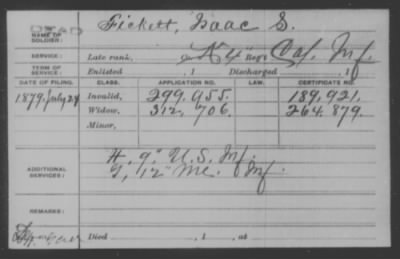 DEAD
NAME OF SOLDIER: Fickett, Isaac S.
SERVICE: Late rank, Co. K 4" Reg't Cal. Inf.
TERM OF SERVICE: Enlisted , 1 Discharged , 1
DATE OF FILING. CLASS. APPLICATION NO. LAW. CERTIFICATE NO.
1879, July 24 Invalid, 299,955. 189,921.
Widow, 312,706. 264,879.
Minor,
ADDITIONAL SERVICES: H, 9" U.S. Inf.
12" Me. Inf.
REMARKS:
Died , 1 , at